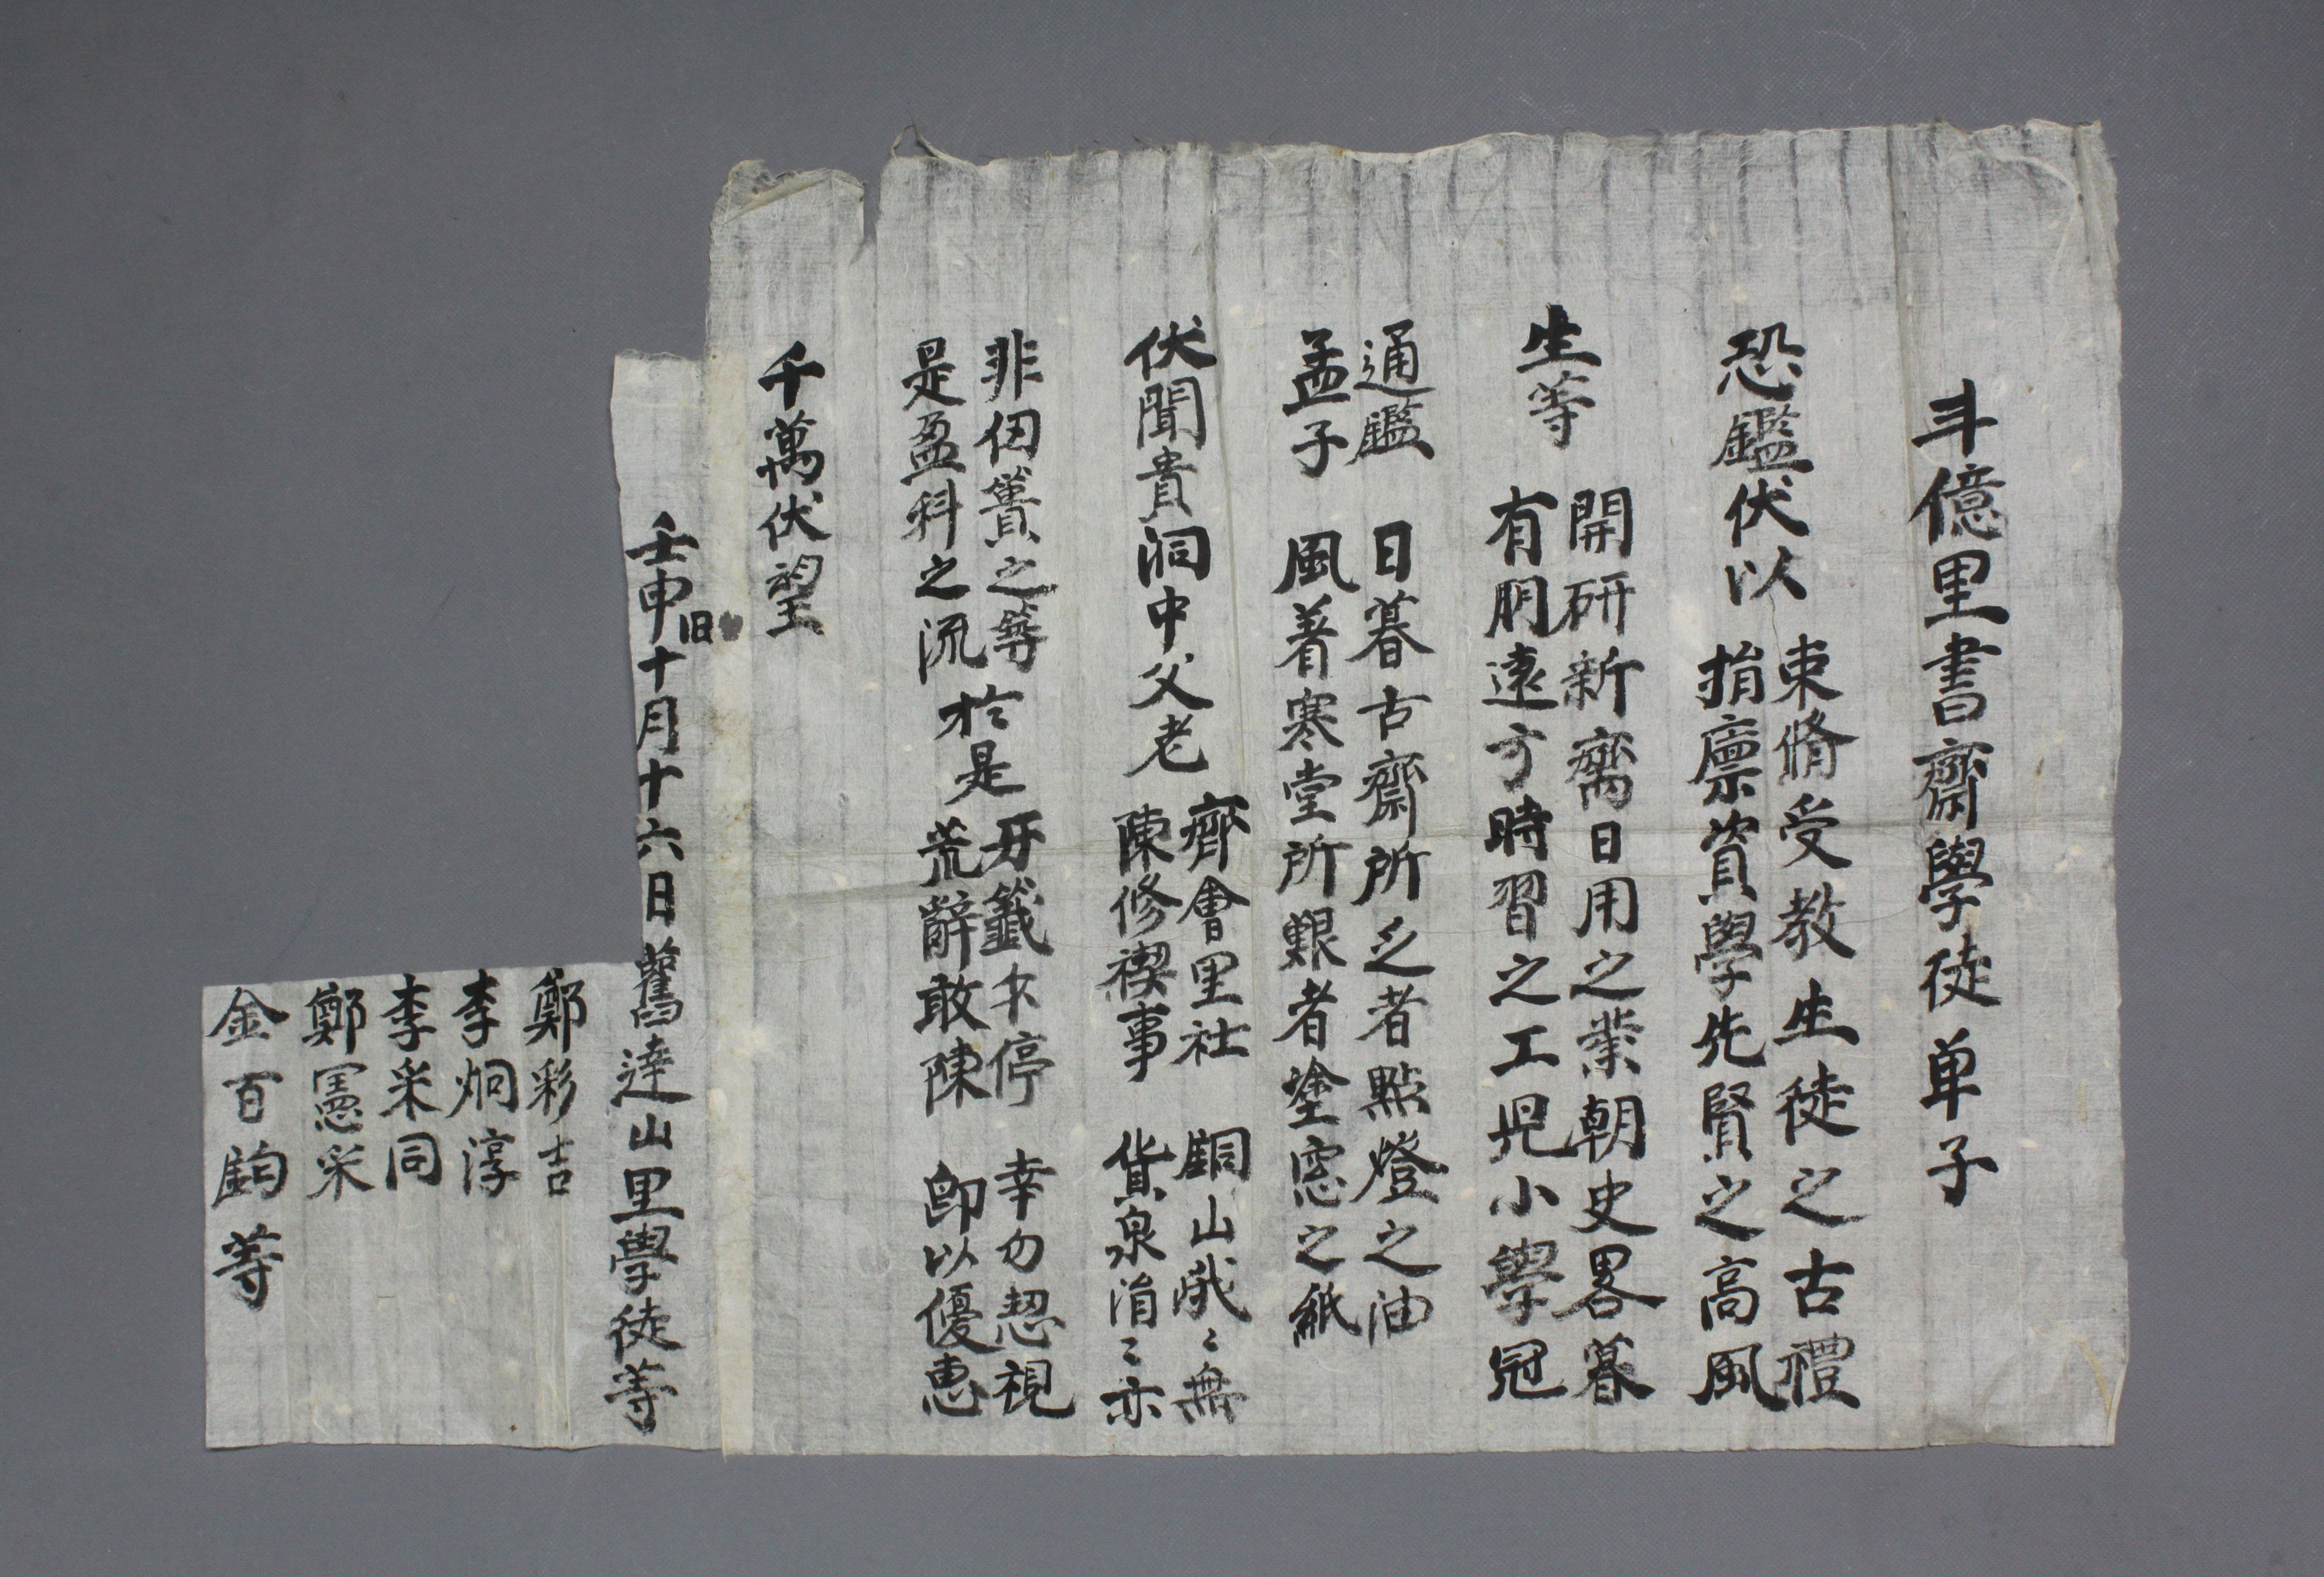 斗億里書齋學徒单子
恐鑑伏以
束脩受教生徒之古禮
捐廩資學先賢之高風
生等
開硏新齋日用之業朝史畧暮
有朋遠方時習之工兒小學冠
通鑑 日暮古齋所乏者點燈之油
孟子 風着寒堂所艱者塗窓之紙
伏聞貴洞中父老
齊會里社
陳修禊事
銅山峩〻無
貨泉滑〻亦
非因簣之等
是盈科之流
於是
停
荒辭敢陳
幸勿恝視
即以優惠
千萬伏望
壬申旧十月十六日舊達山里學徒等
鄭彩吉
李炯淳
李采同
鄭憲采
金百鈞等